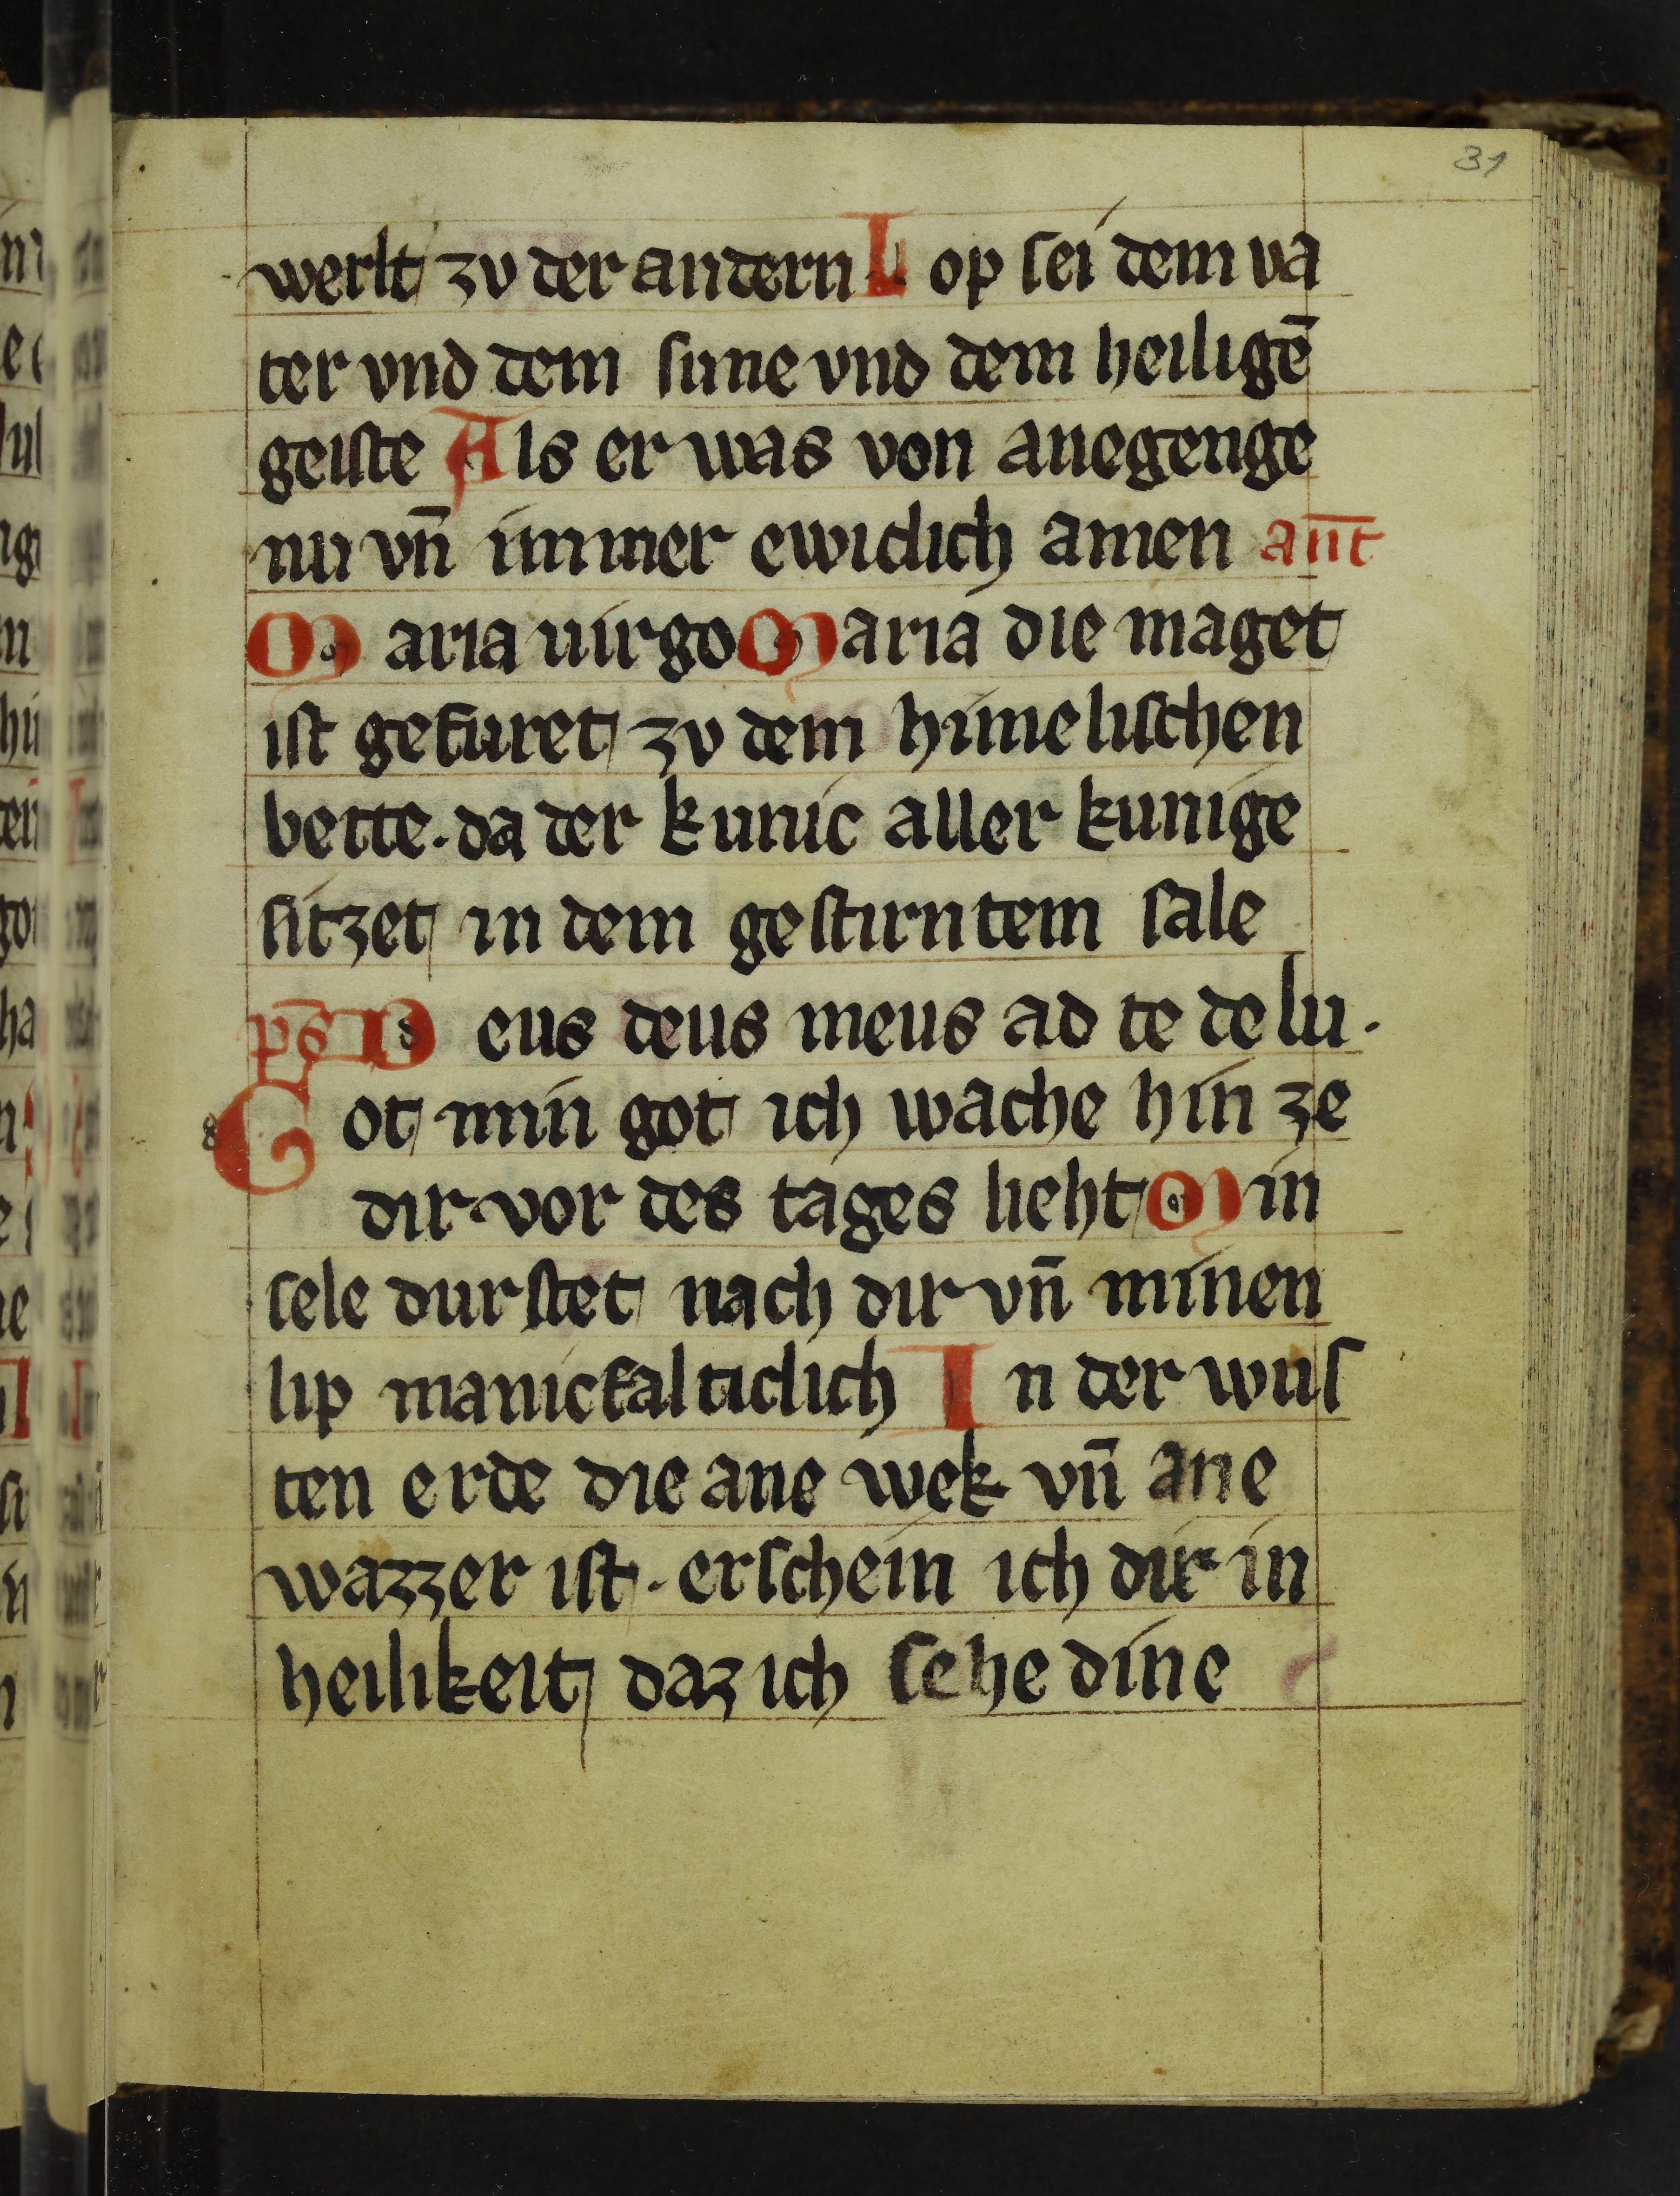 31
werlt zv der andern Lop sei dem va
ter vnd dem sune vnd dem heiligē
geiste Als er was von anegenge
nu vn̄ immer ewiclich amen an̄t
Maria uirgo Maria die maget
ist gefuret zv dem himelischen
bette · da der kunic aller kunige
sitzet in dem gestirntem sale
ps̄ Deus deus meus ad te de lu ·
Got min got ich wache hin ze
dir vor des tages lieht Min
sele durstet nach dir vn̄ minen
lip manicfalticlich In der wus
ten erde die ane wek vn̄ ane
wazzer ist · erschein ich dir in
heilikeit daz ich sehe dine